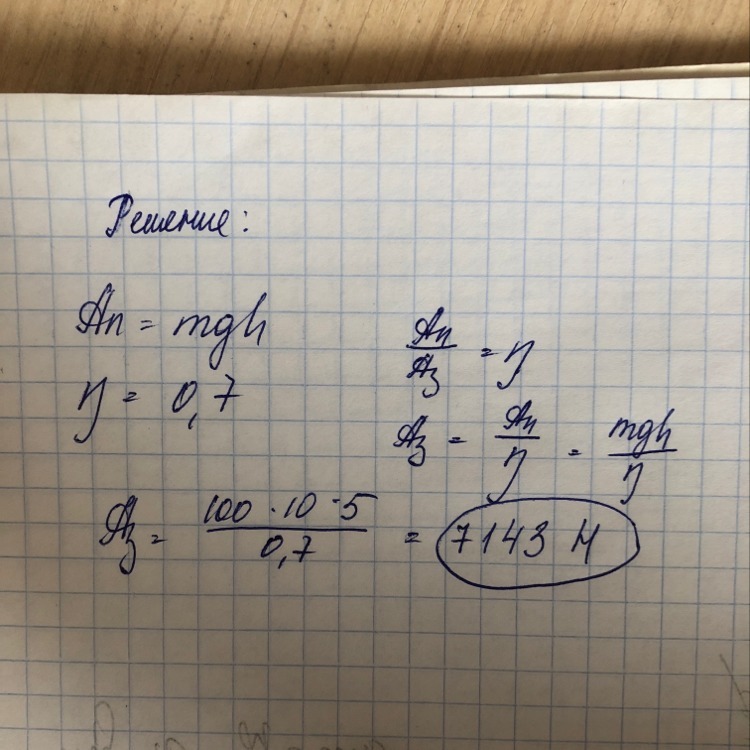 Решение:
Aп = mgh
η = 0,7
Aп/Aз = η
Aз = Aп/η = mgh/η
Aз = 100 · 10 · 5/0,7 = 7143 Н